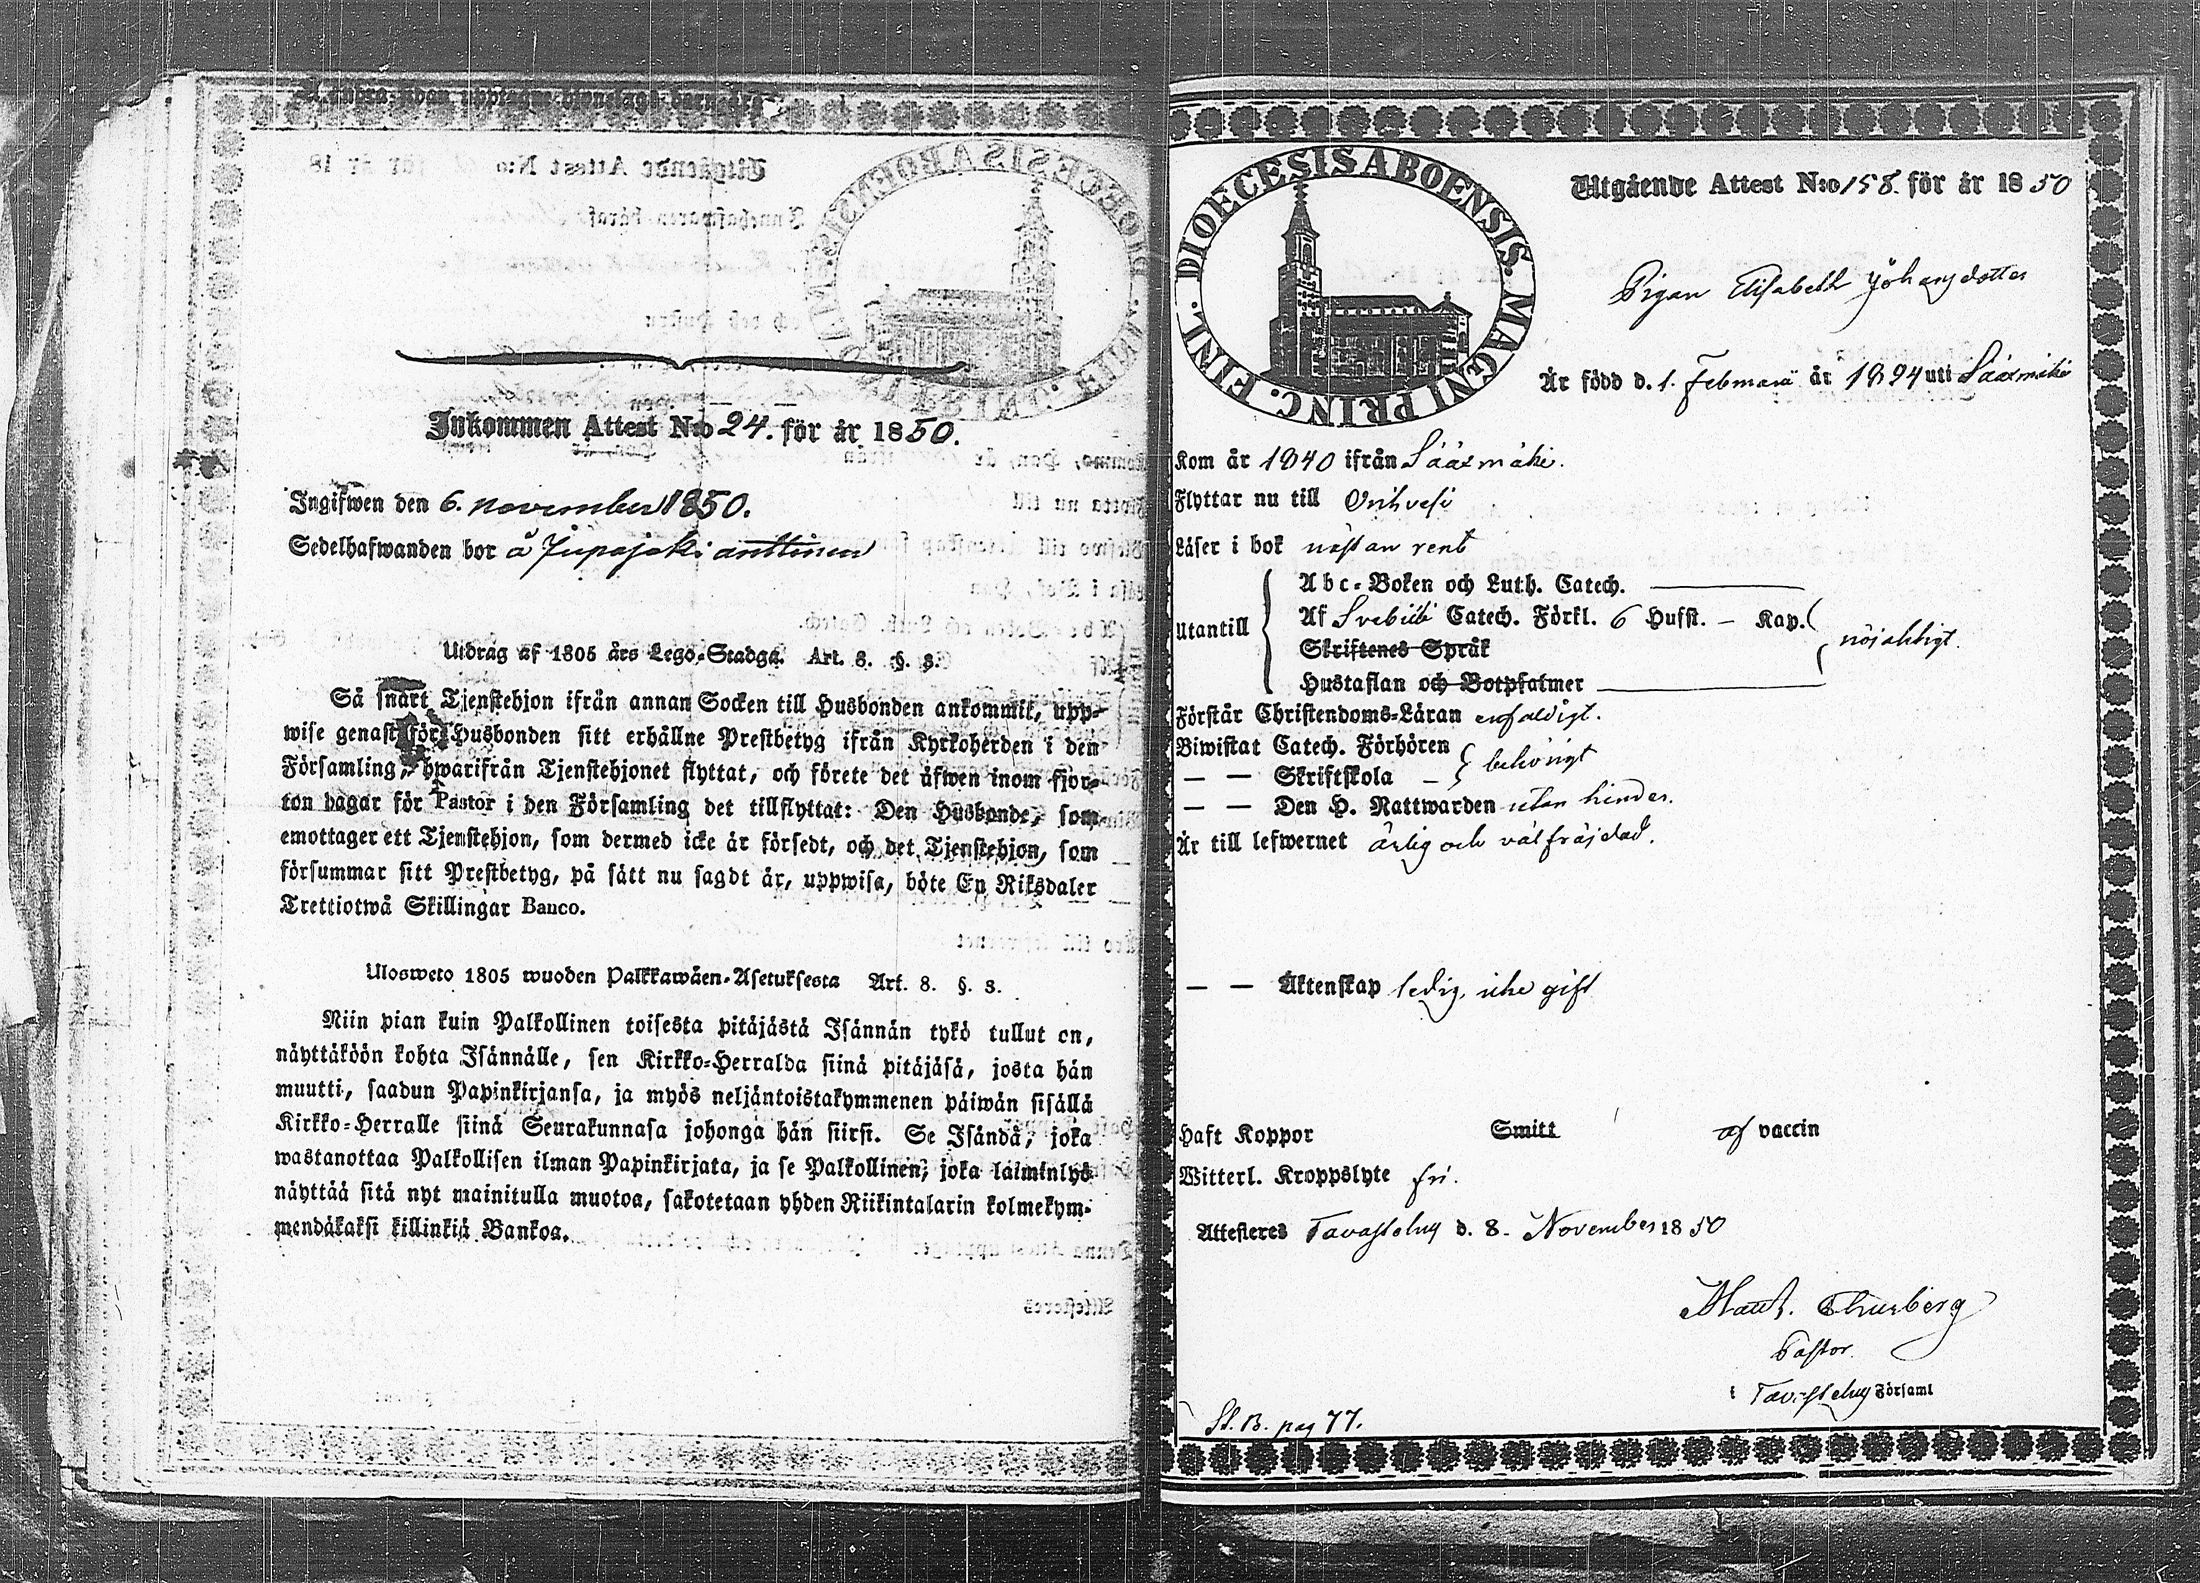 Inkommen Attest N:o 24. för år 1850.
Ingifwen den 6. november 1850.
Sedelhafwanden bor å Jupajoki anttinen
Utdrag af 1805 års Lego-Stadga. Art. 8. §. 3.
Så snart Tjenstehjon ifrån annan Socken till Husbonden ankommit, upp-
wise genast för Husbonden sitt erhållne Prestbetyg ifrån Kyrkoherden i den
Församling, hwarifrån Tjenstehjonet flyttat, och förete det äfwen inom fjor-
ton dagar för Pastor i den Församling det tillflyttat: Den Husbonde, som
emottager ett Tjenstehjon, som dermed icke är försedt, och det Tjenstehjon, som
försummar sitt Prestbetyg, på sätt nu sagdt är, uppwisa, böte En Riksdaler
Trettiotwå Skillingar Banco.
Ulosweto 1805 wuoden Palkkawäen-Asetuksesta Art. 8. §. 3.
Niin pian kuin Palkollinen toisesta pitäjästä Isännän tykö tullut on,
näyttäköön kohta Isännälle, sen Kirkko-Herralda siinä pitäjäsä, josta hän
muutti, saadun Papinkirjansa, ja myös neljäntoistakymmenen päiwän sisällä
Kirkko-Herralle siinä Seurakunnasa johonga hän siirsi. Se Isändä, joka
wastanottaa Palkollisen ilman Papinkirjata, ja se Palkollinen, joka laiminlyö
näyttää sitä nyt mainitulla muotoa, sakotetaan yhden Riikintalarin kolmekym-
mendäkaksi killinkiä Bankoa.
DIOECESIS ABOENSIS. MAGNI PRINC. FINL.
Utgående Attest N:o 158. för år 1850
Pigan Elisabeth Johansdotter
Är född d. 1. Februarii år 1824 uti Sääxmäki
Kom år 1840 ifrån Sääxmäki.
Flyttar nu till Orihvesi
Läser i bok nästan rent
Utantill
Abc-Boken och Luth. Catech.
Af Svebilii Catech. Förkl. 6 Hufst. – Kap.
Skriftenes Språk
nöjaktigt.
Hustaflan och Botpsalmer
Förstår Christendoms-Läran enfaldigt.
Biwistat Catech. Förhören
— — Skriftskola –
behörigt
— — Den H. Nattwarden utan hinder.
Är till lefwernet ärlig och välfräjdad.
— — Äktenskap ledig, icke gift
Haft Koppor Smitt af vaccin
Witterl. Kroppslyte fri.
Attesteres Tavastehus d. 8. November 1850
Thurberg
Pastor.
i Tavastehus Församl
Sl. B. pag 77.